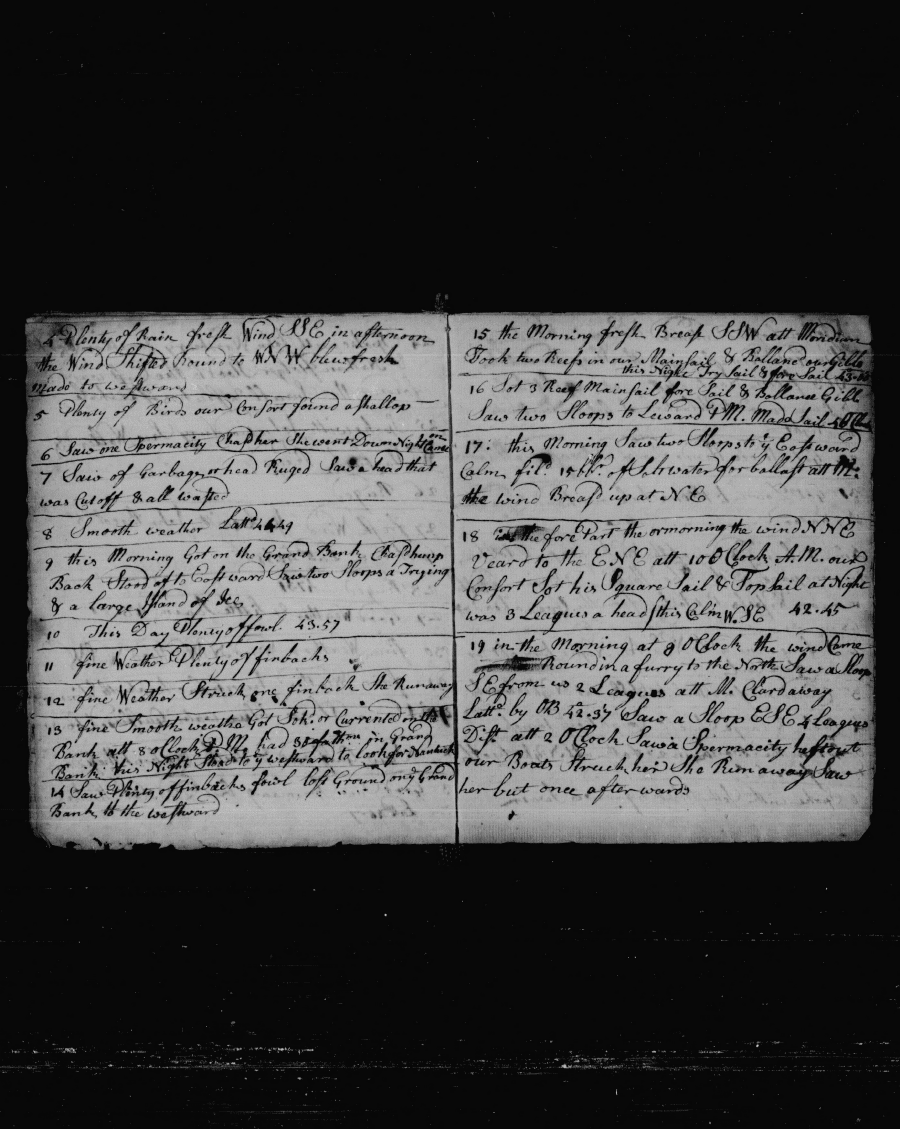 4 Plenty of Rain fresh Wind SSE in afternoon
the Wind Shifted Round to WNW blew fresh
made to westward
5 Plenty of Birds our Consort found a shallop
6 Saw one Spermacity Chasd her She went Down Night Came on
7 Saw of Garbage or head Ruged Saw a head that
was Cut off & all wasted
8 Smooth weather Lattd 44 49
9 this Morning Got on the Grand Bank Chasd hump
Back Stood of to Eastward Saw two Sloops a Trying
& a Large Island of Ice
10 This Day Plenty of fowl. 43.57
11 fine Weather Plenty of finbacks
12 fine Weather Struck one finback She Runaway
13 fine Smooth weather Got or Currented on the
Bank att 8 oClock P M. had 38 fathm on Grand
Bank this Night Stood to y westward to Look for Nantuck
14 Saw Plenty of finbacks fowl lost Ground on y Grand
Bank to the westward
15 the Morning fresh Breas SSW att Meridian
Took two Reefs in our Mainsail & Ballanc our Gibb
this Night Try Sail & fore Sail 43
16 Sot 3 Reef Mainsail fore Sail & Ballance Gibb
Saw two Sloops to Leward P M. Made Sail
17: this Morning Saw two Sloops to y Eastward
Calm fild 15 bbs. of Saltwater for ballast att M.
the wind Breasd up at N E
18 the fore Part the ormorning the wind NNE
Veard to the ENE att 10 OClock A.M. our
Consort Sot his Square Sail & Topsail at Night
was 3 Leagues a head this Calm W. SE 42.45
19 in the Morning at 9 OClock the wind Came
Round in a furry to the North Saw a Sloop
SE from us 2 Leagues att M. Clard away
Lattd by OB 42.37 Saw a Sloop ESE 4 Leagues
Dist att 2 OClock Saw a Spermacity out
our Boats Struck her She Run away Saw
her but once after wards